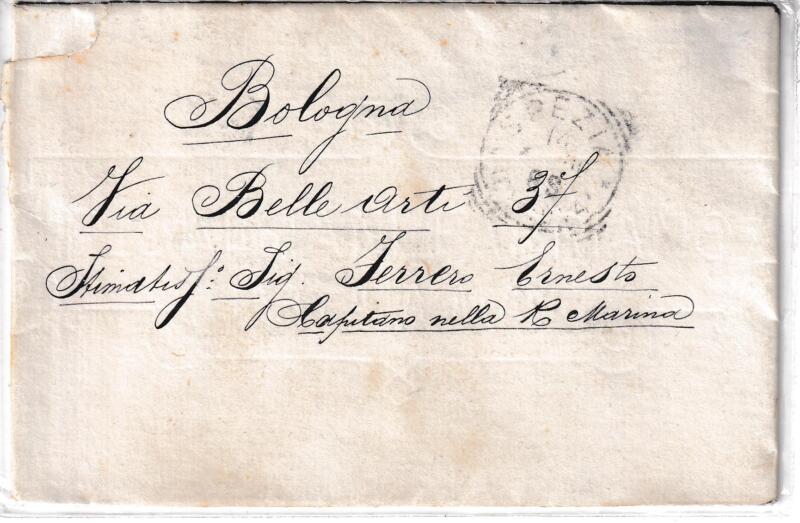 Bologna
Via Belle Arti 37
Stimatiss.º Sig. Ferrero Ernesto
Capitano nella R Marina
SPEZIA